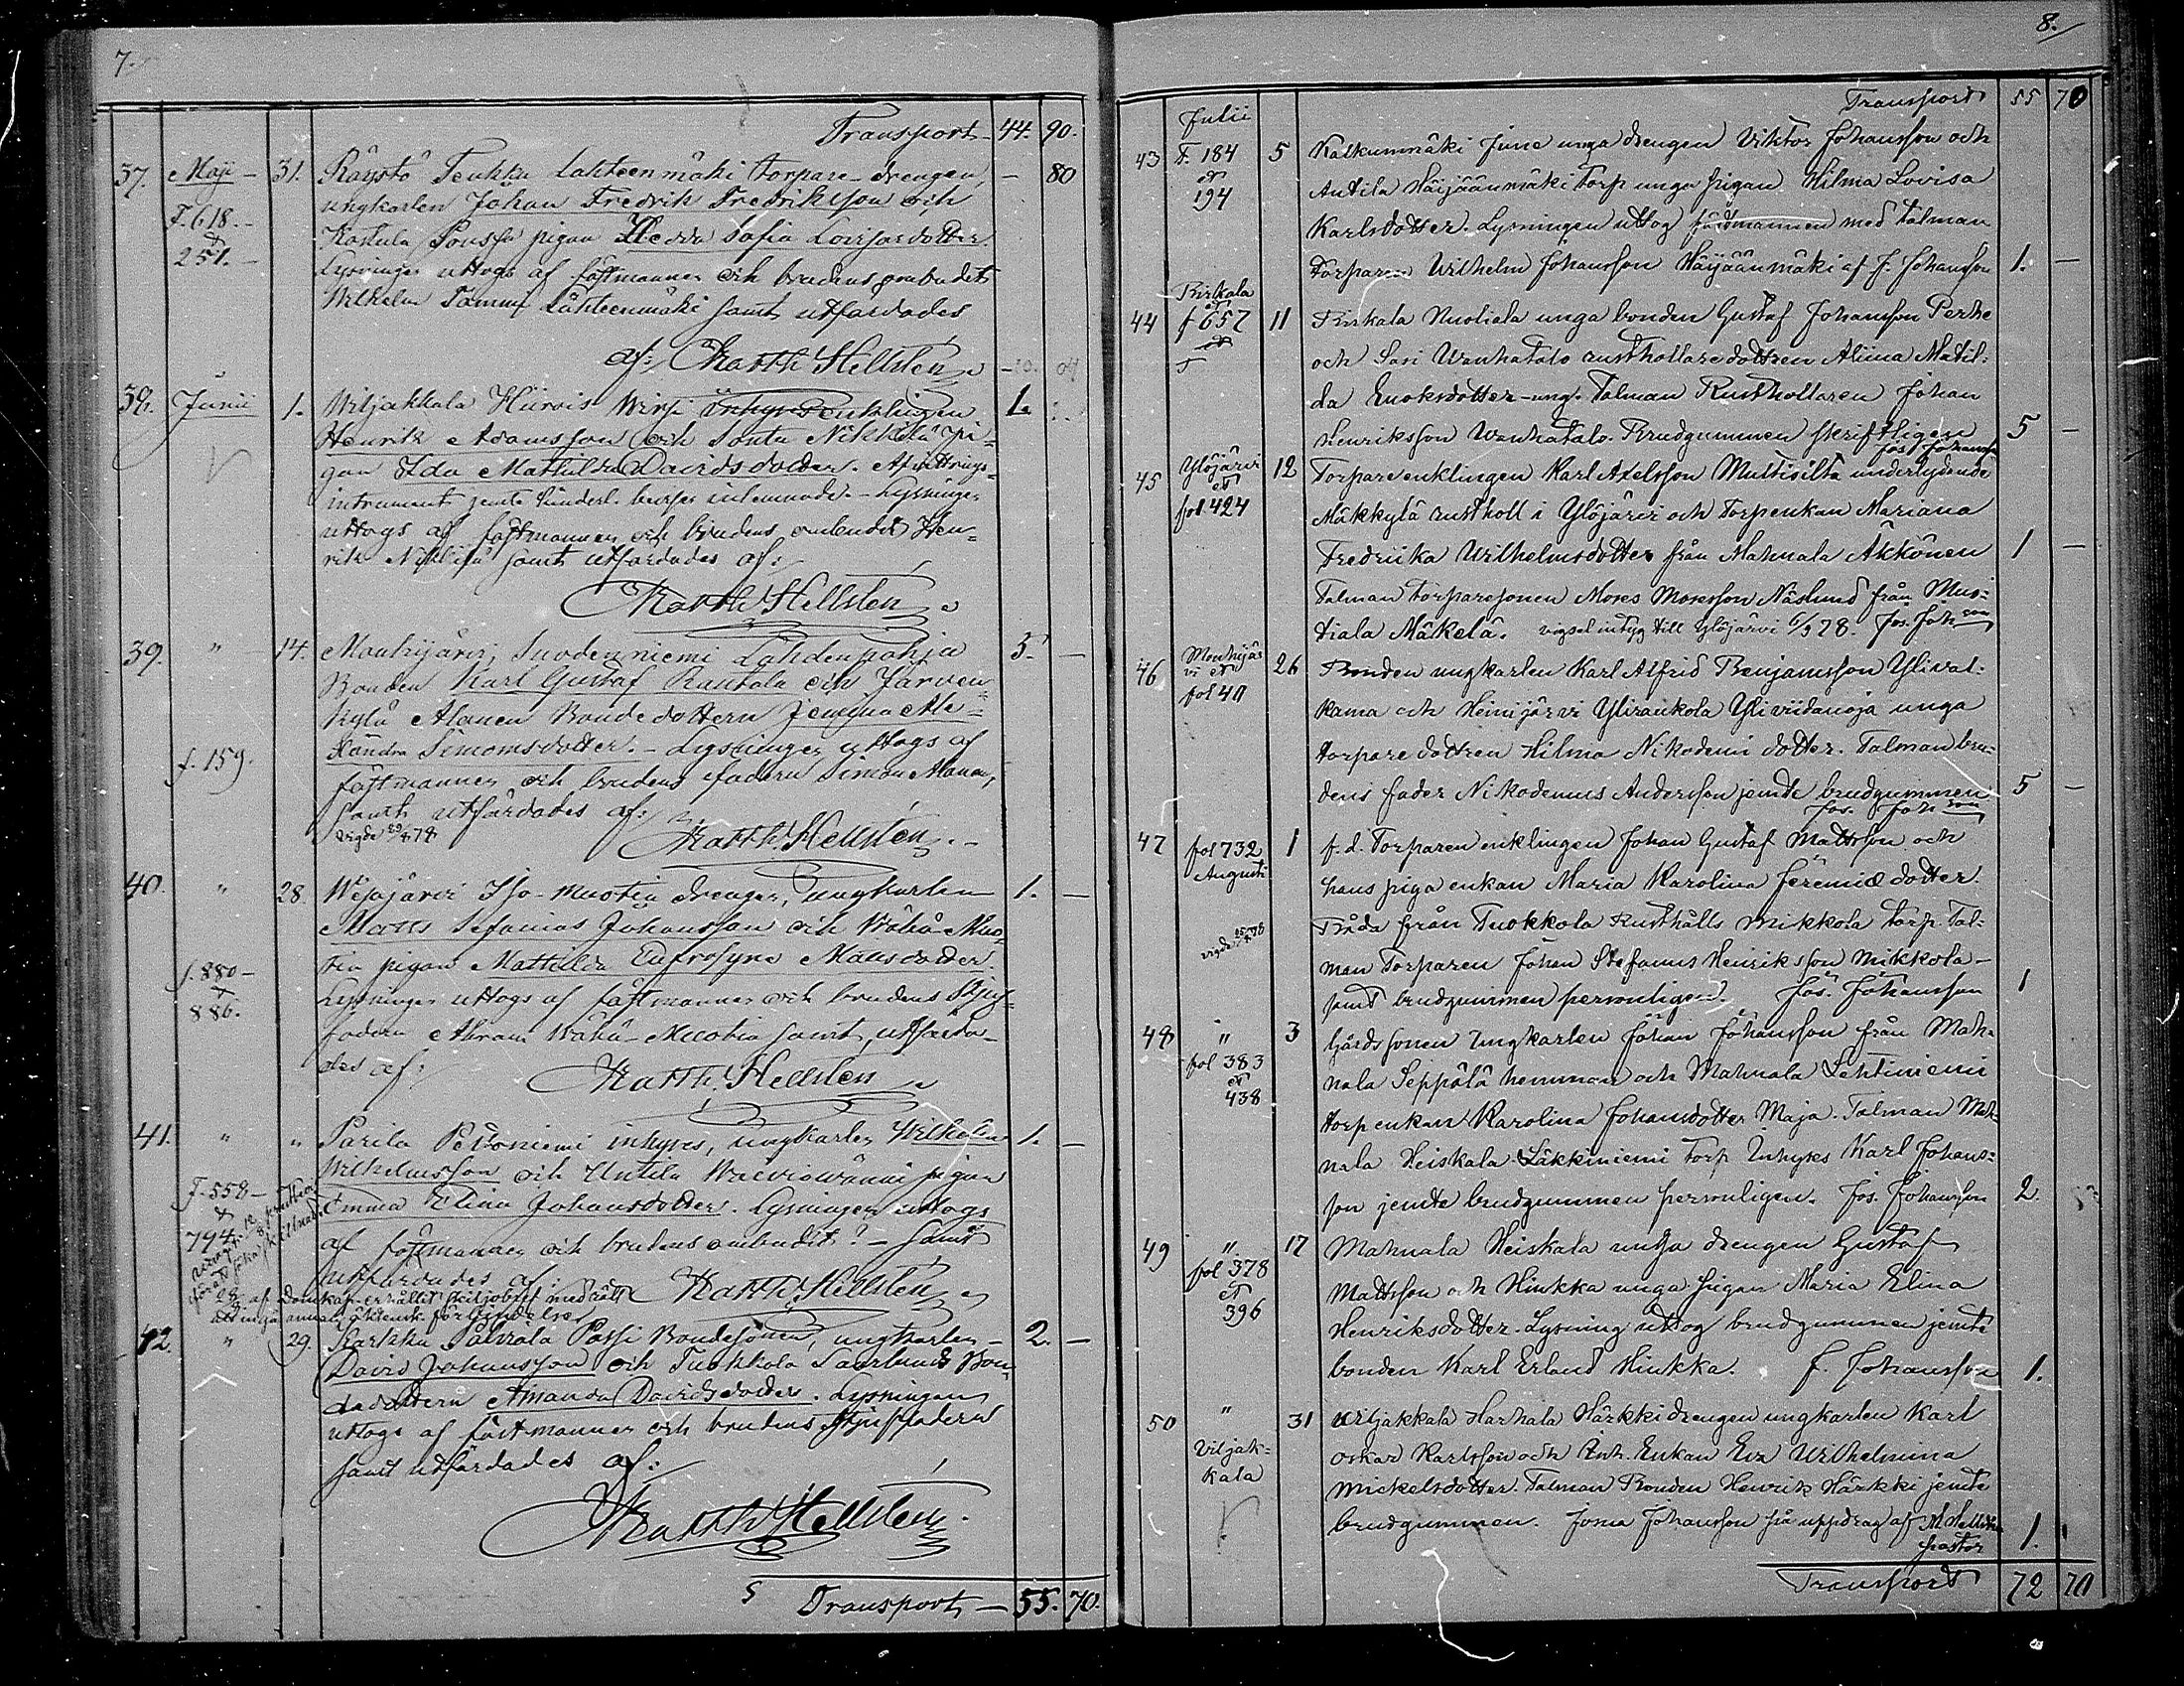 7.
Transport 44. 90.
37. Maji 31. Räystö Teukku Lahteenmäki torpare-drengen, — 80
ungkarlen Johan Fredrik Fredriksson och
F. 618. & 251. Koskula Poussa pigan Hedda Sofia Lovisasdotter.
Lysningen uttogs af fästmannen och brudens ombudet
Wilhelm Tammi Lähteenmäki samt utfärdades
af: Matth Hellsten
38. Junii 1. Wiljakkala Hiirois Wirsi inhyses enklingen 1.
Henrik Adamsson och Sontu Nikkilä pi-
gan Ida Mathilda Davidsdotter. Afvittrings-
instrument jemte hinderl. bevis inlemnade. Lysningen
uttogs af fästmannen och brudens ombudet Hen-
rik Nikkilä samt utfärdades af:
Matth Hellsten
39. " 14. Mouhijärvi, Suodenniemi Lahdenpohja 5. —
Bonden Karl Gustaf Rantala och Järven-
kylä Alanen Bondedottern Jemina Ale-
xandra Simonsdotter. Lysningen uttogs af
f. 159. fästmannen och brudens fadern Simon Alanen,
samt utfärdades af:
vigde 29/8 78 Matth. Hellstén.
40. " 28. Wesajärvi Iso-Muotia drengen, ungkarlen 1. —
Matts Sefanias Johansson och Wähä-Muo-
tia pigan Mathilda Eufrosyne Mattsdotter.
f. 880 & 886. Lysningen uttogs af fästmannen och brudens Styf-
fadern Abram Wähä-Muotia samt utfärda-
des af: Matth. Hellsten
41. " " Parila Petoniemi inhyses, ungkarlen Wilhelm 1. —
Wilhelmsson och Untila pigan
F. 558 & 794. Emma Elina Johansdotter. Lysningen uttogs
af fästmannen och brudens ombudet? — samt
utfärdades af: Matth Hellsten
af Domkap. erhållit skiljobref med rätt
att ingå annat äktensk. förbindelse
42. " 29. Sarkku Palvala Passi Bondesonen, ungkarlen 2. —
David Johansson och Tuokkola Saarlunds Bon-
dedottern Amanda Davidsdotter. Lysningen
uttogs af fästmannen och brudens styffadern
samt utfärdades af:
Matth Hellsten
Transport — 55. 70.
8.
Transport 55 70
43 Julii F. 184 et 194 5 Kalkunmäki June unga drengen Viktor Johansson och
Antila Häijäänmäki Torp unga pigan Hilma Lovisa
Karlsdotter. Lysningen uttog fästmannen med talman
Torparen Wilhelm Johansson Häijäänmäki af J. Johansson 1. —
44 Birkala et f 657 11 Birkala Nuoliala unga bonden Gustaf Johansson Perke
och Sasi Wanhatalo rusthollaredottren Aliina Matil-
da Enoksdotter ung. Talman Rusthollaren Johan
Henriksson Wanhatalo. Brudgummen skriftligen 5 —
Jos Johansson
45 Ylöjärvi et fol 424 12 Torpareenklingen Karl Axelsson Multisilta underlydande
Mäkkylä rustholl i Ylöjärvi och Torpenkan Mariana
Fredriika Wilhelmsdotter från Mahnala Äkkönen 1 —
Talman torparesonen Moses Mosesson Näslund från Mus-
tiala Mäkelä. vigsel intyg till Ylöjärvi 1/9 78. Jos. Johsson
46 Mouhijärvi et fol 40 26 Bonden ungkarlen Karl Alfrid Benjamsson Ylival-
kama och Heinijärvi Yliraukola Yliviidanoja unga
torparedottren Hilma Nikodemi dotter. Talman bru-
dens fader Nikodemus Andersson jemte brudgummen 5 —
Jos. Johsson
47 fol 732 Augusti 1 f.d. Torparen enklingen Johan Gustaf Mattsson och
hans piga enkan Maria Karolina Jeremiæ dotter.
Båda från Tuokkola Rusthålls Mikkola torp. Tal-
man Torparen Johan Stefanus Henriksson Mikkola
samt brudgummen personligen. Jos. Johansson 1
48 " fol 383 et 438 3 Gårdssonen Ungkarlen Johan Johansson från Mah-
nala Seppälä hemman och Mahnala Lehtiniemi
torpenkan Karolina Johansdotter Maja. Talman Mah-
nala Heiskala Läkkiniemi Torp Inhyses Karl Johans-
son jemte brudgummen personligen. Jos. Johansson 2.
49 " fol 378 et 396 17 Mahnala Heiskala unga drengen Gustaf
Mattsson och Hinkka unga pigan Maria Elina
Henriksdotter. Lysning uttog brudgummen jemte
bonden Karl Erland Hinkka. J. Johansson 1.
50 " Viljakkala 31 Viljakkala Harhala Härkki drengen ungkarlen Karl
Oskar Karlsson och Inh. Enkan Eva Wilhelmina
Mickelsdotter. Talman Bonden Henrik Härkki jemte
brudgummen. Josua Johansson på uppdrag af M. Hellsten 1.
pastor
Transport 72 70